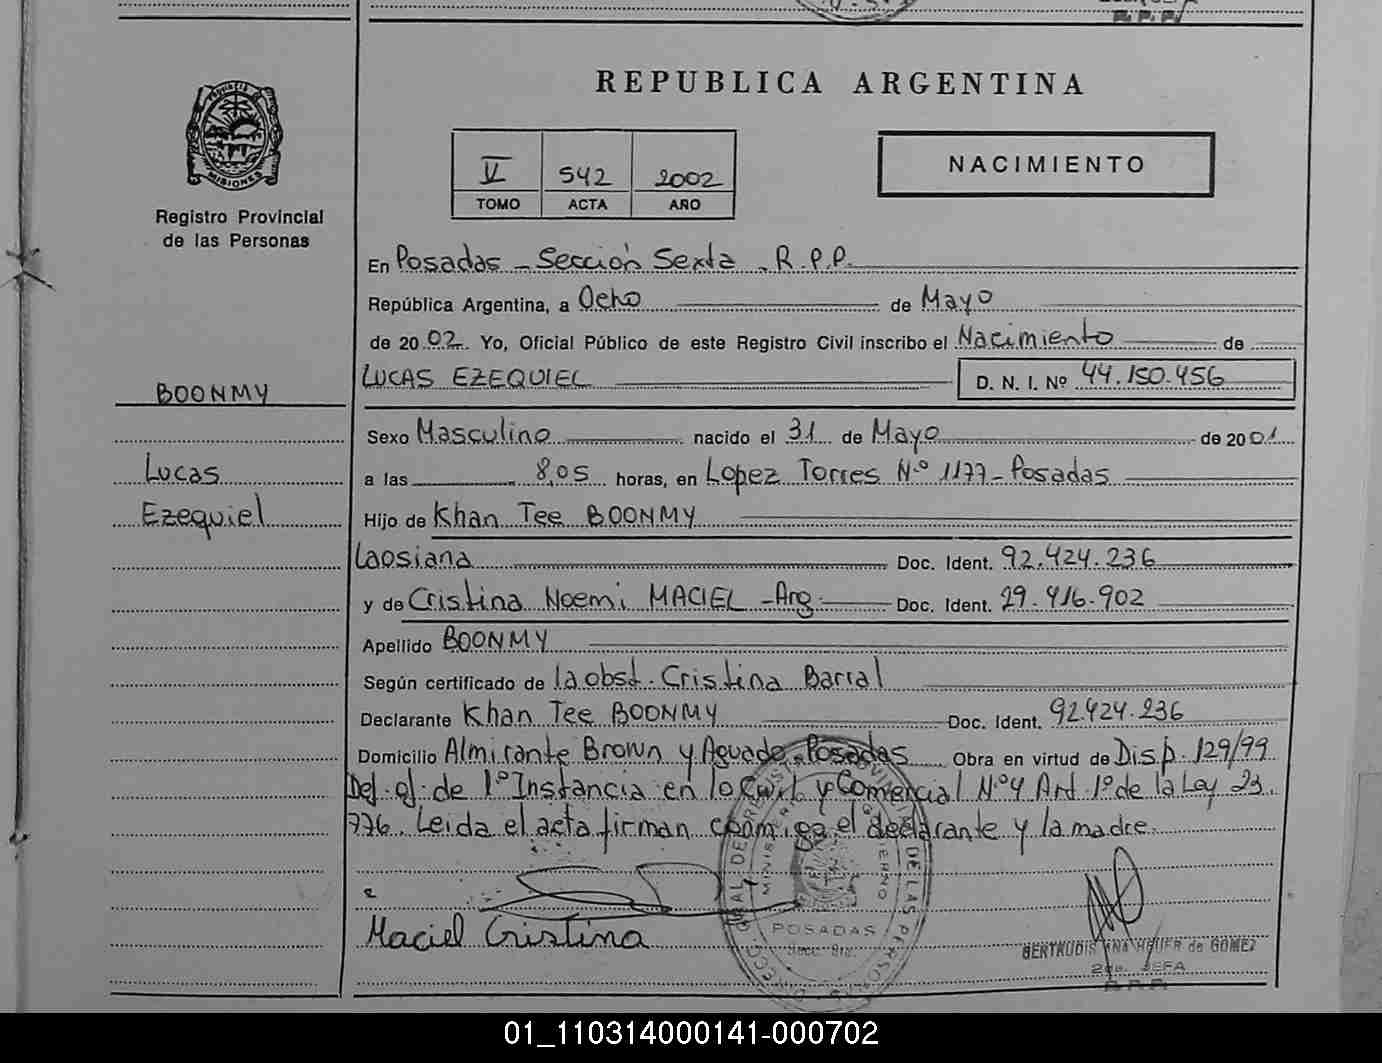 REPUBLICA ARGENTINA
MISIONES
Registro Provincial
de las Personas
V 542 2002
TOMO ACTA AÑO
NACIMIENTO
En Posadas - Sección Sexta - R.P.P.
República Argentina, a Ocho de Mayo
de 2002. Yo, Oficial Público de este Registro Civil inscribo el Nacimiento de
LUCAS EZEQUIEL D. N. I. Nº 44.150.456
BOONMY
Lucas
Ezequiel
Sexo Masculino nacido el 31 de Mayo de 2001
a las 8,05 horas, en Lopez Torres Nº 1177 - Posadas
Hijo de Khan Tee BOONMY
Laosiana Doc. Ident. 92.424.236
y de Cristina Noemi MACIEL - Arg. Doc. Ident. 29.416.902
Apellido BOONMY
Según certificado de la obst. Cristina Barral
Declarante Khan Tee BOONMY Doc. Ident. 92.424.236
Domicilio Almirante Brown y Aguado - Posadas Obra en virtud de Disp. 129/99
Def. of. de 1º Instancia en lo Civil y Comercial Nº 4 Art. 1º de la Ley 23.
776. Leida el acta firman el declarante y la madre.
Maciel Cristina
POSADAS
GERTRUDIS ANA de GOMEZ
2da. JEFA
R.P.P.
01_110314000141-000702